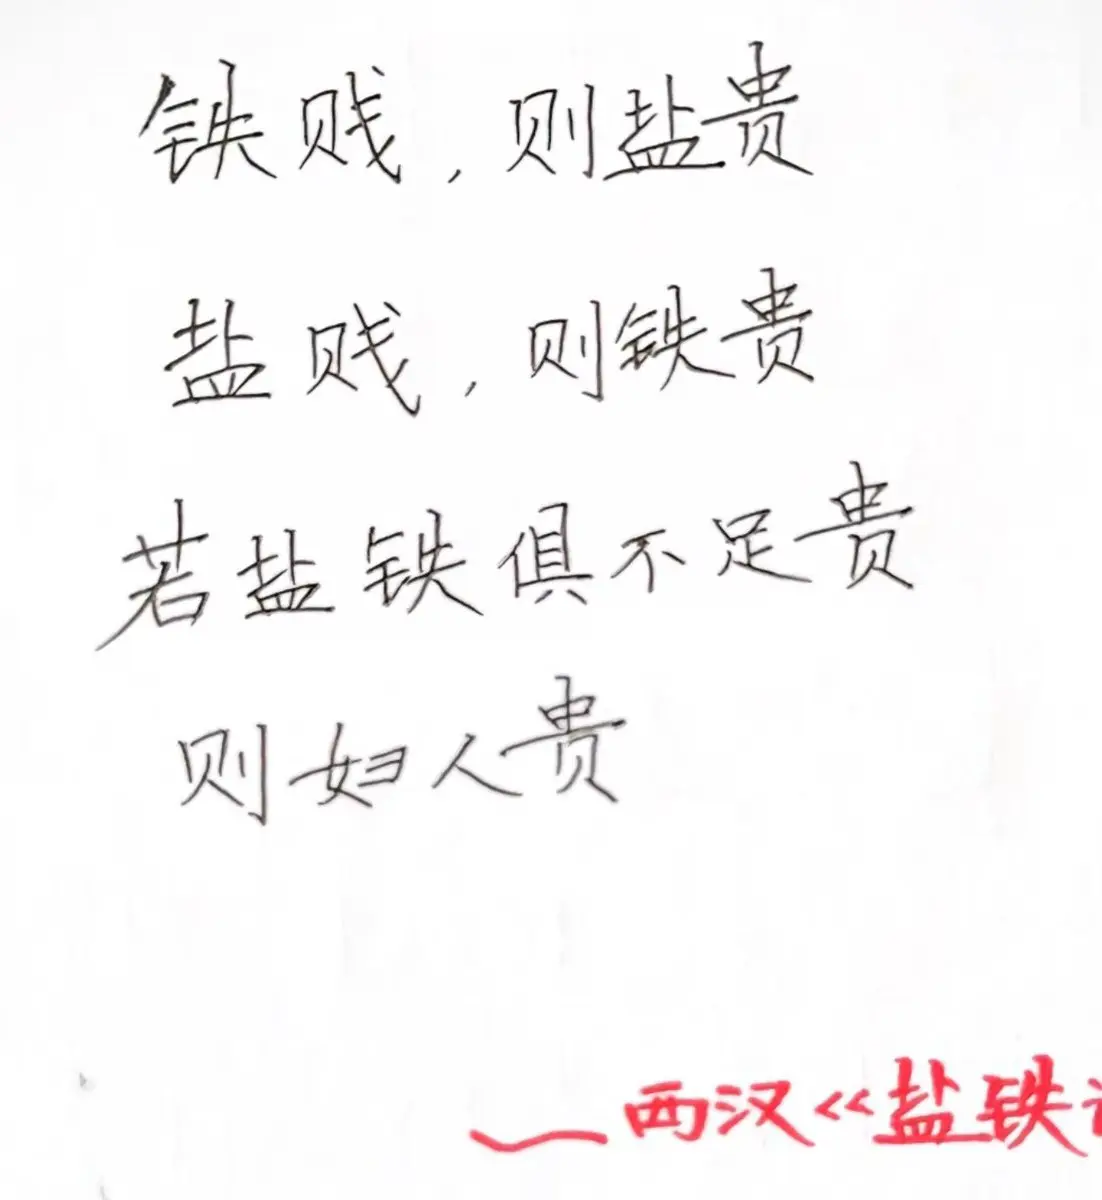 铁贱,则盐贵
盐贱,则铁贵
若盐铁俱不足贵
则妇人贵
——西汉《盐铁